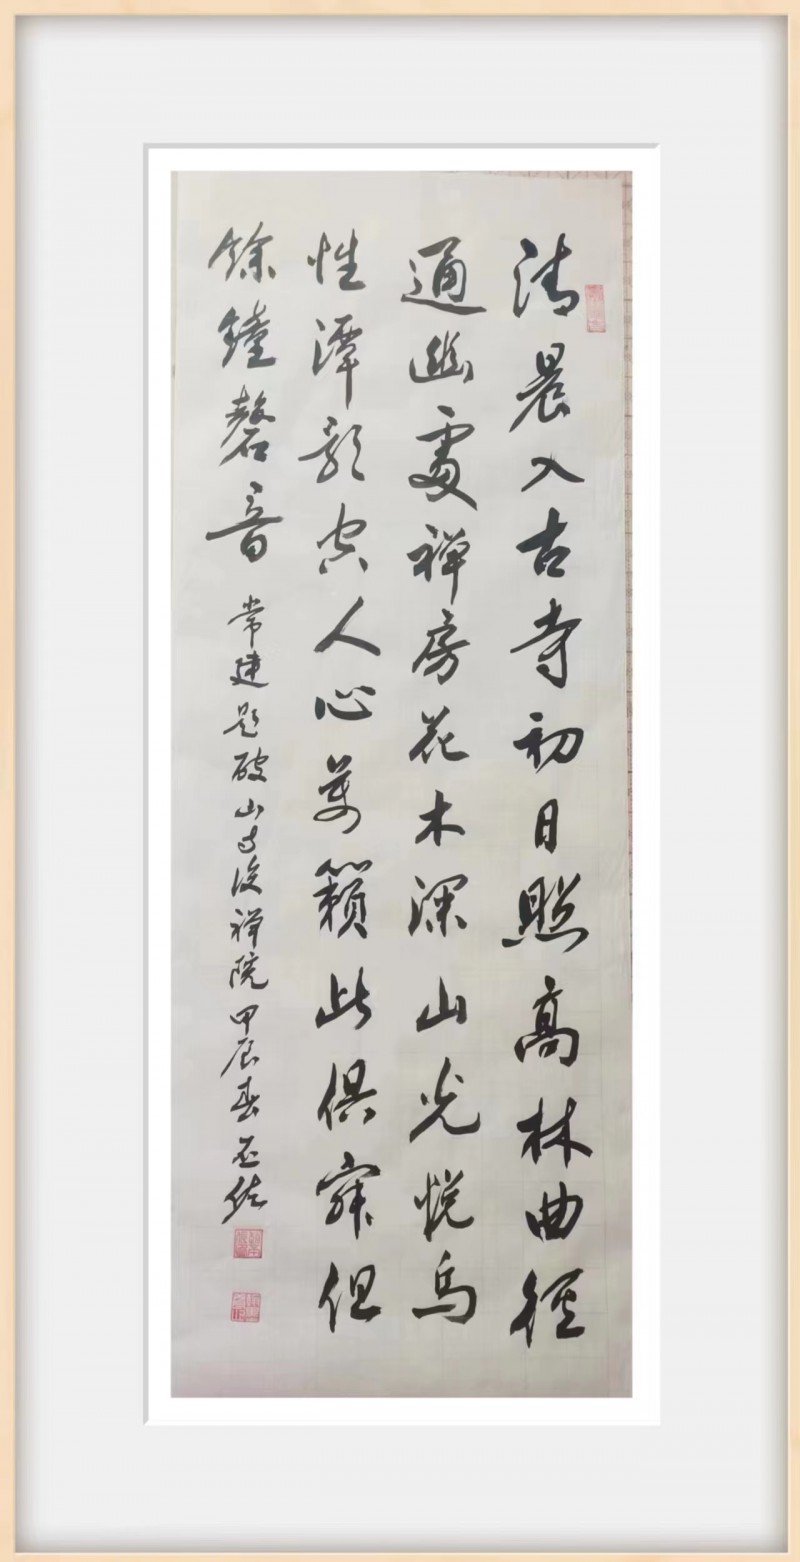 清晨入古寺初日照高林曲徑
通幽處禅房花木深山光悦鳥
性潭影空人心萬籟此俱寂但
餘鐘磬音
常建題破山寺後禅院甲辰春